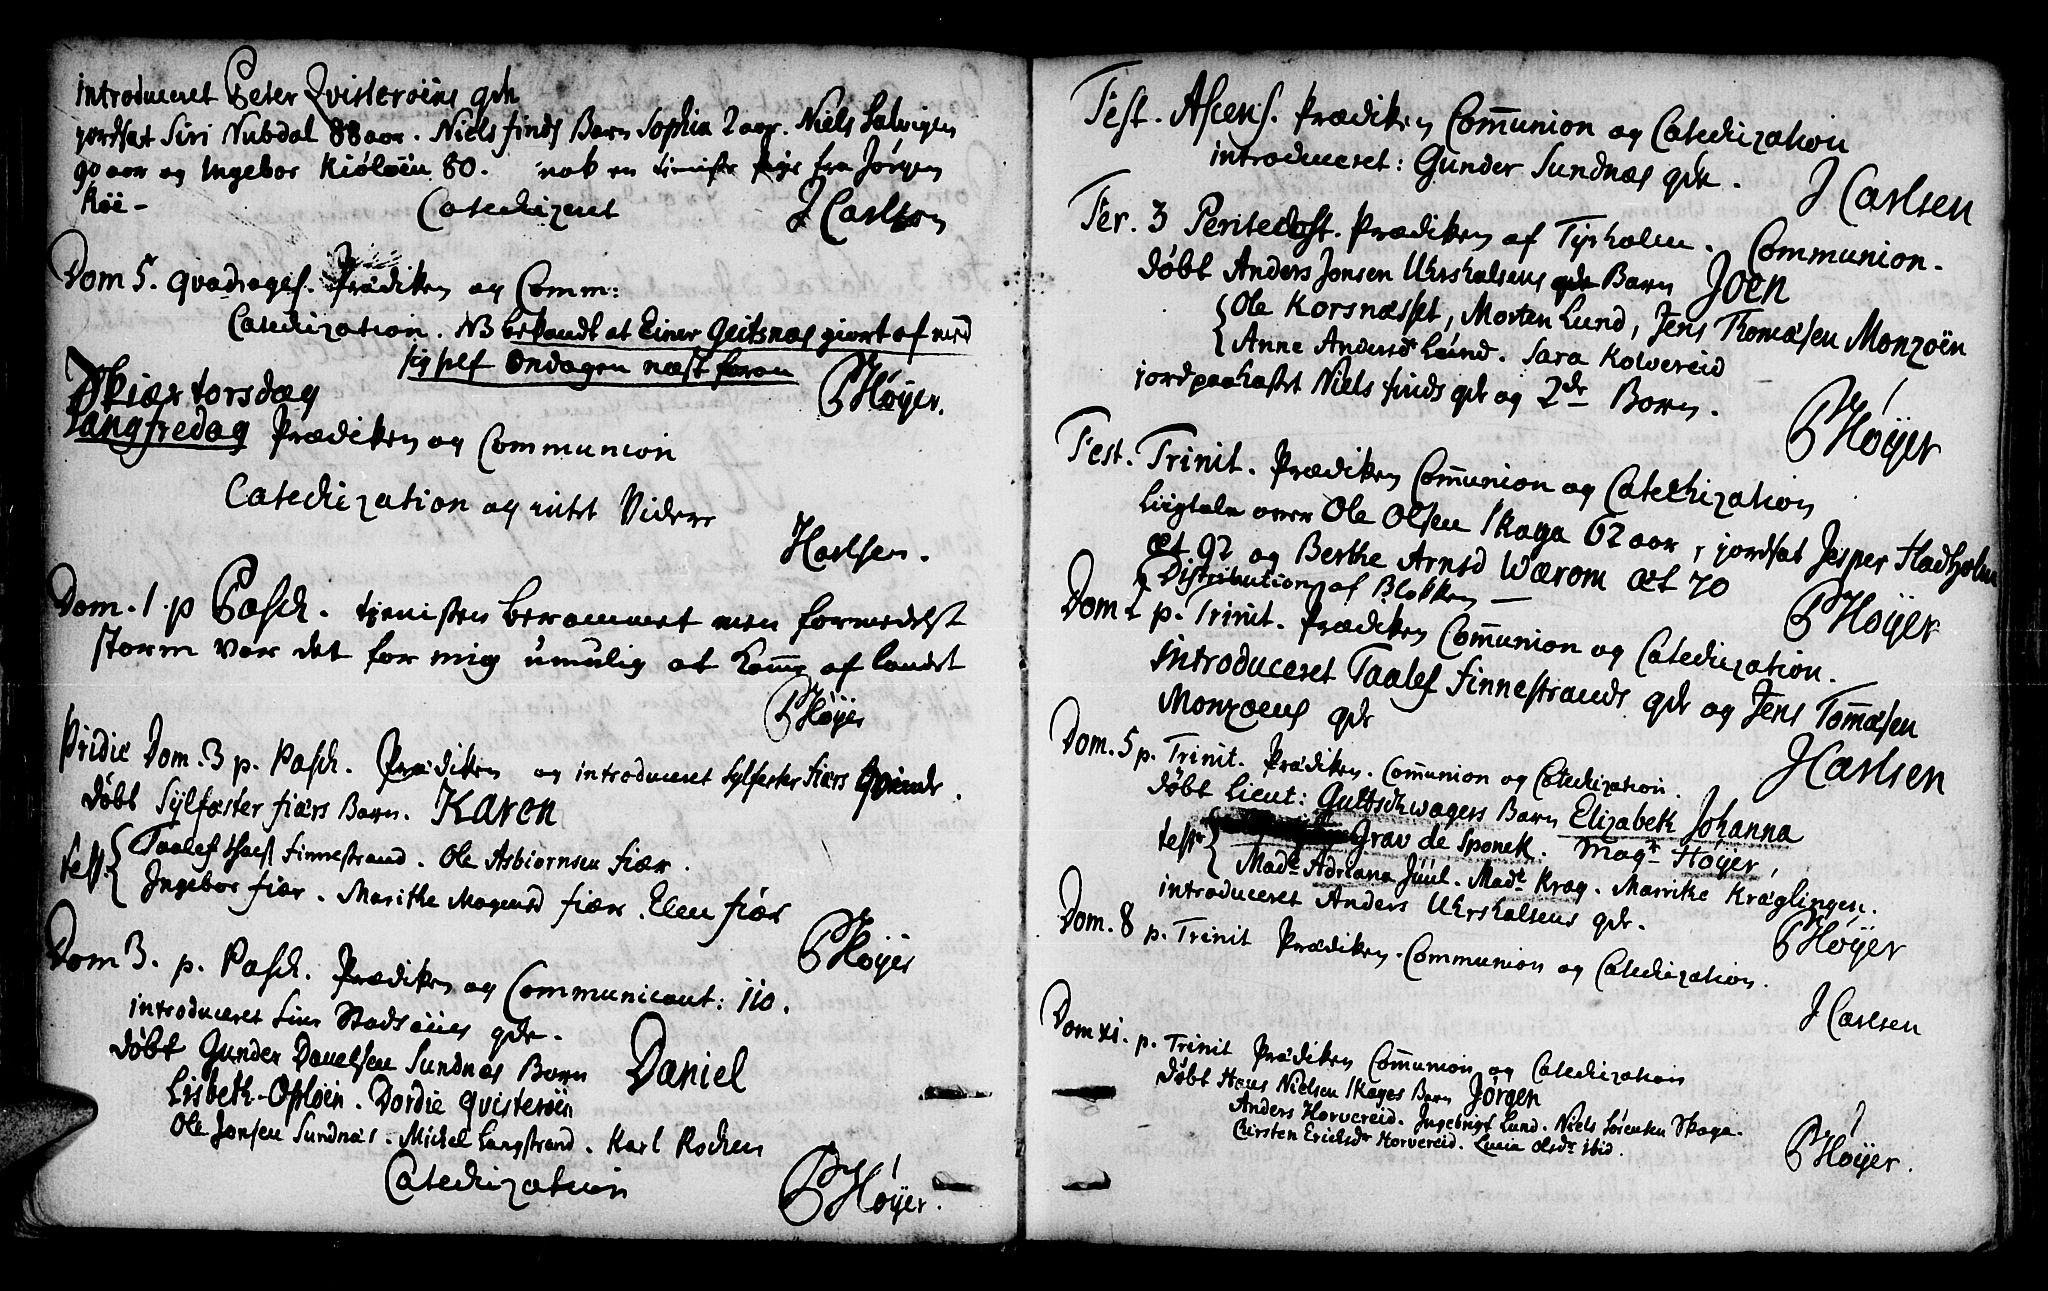 introduceret Peter Qvisterøens qde
jordfæst Siri Nubdal 88 aar. Niels finds Barn Sophia 2 aar. Niels Salvigen
90 aar og Ingebor Kiøløen 80. nok en pige fra Jørgen
Røe -
Catechizeret J Carlsen
Dom 5. qvadrages. Prædiken og Comm:
Catechization. NB bekandt at Einer Geitsnæs giort af med
sig self Ondagen næst foran
PHøyer.
Skiærtorsdag
Langfredag Prædiken og Communion
Catechization og intet Videre
JCarlsen.
Dom. 1. p Pasch. tjenisten berammet men formedelst
storm var det for mig umulig at komme af landet
PHøyer
Pridie Dom. 3 p. Pasch. Prædiken og introduceret Sylfester fiærs Qvinde.
døbt Sylfæster fiærs Barn. Karen
test. { Taalef finnestrand. Ole Asbiørnsen fiær.
Ingebor fiær. Marithe Mogensd fiær. Elen fiær
PHøyer
Dom 3. p. Pasch. Prædiken og Communicant: 110.
introduceret Stadsøiens qde.
døbt Gunder Danelsen Sundnæs Barn Daniel
Lisbeth Opløen. Dordie Qvisterøen
Ole Jonsen Sundnæs. Michel Langstrand. Karl Rochen
Catechization PHøyer.
Fest. Ascens. Prædiken Communion og Catechization
introduceret: Gunder Sundnæs qde.
J Carlsen
Fer. 3 Pentecost. Prædiken af Tyrholm. Communion.
døbt Anders Jonsen Uhrshalsens qde Barn Joen
{ Ole Korsnæsset, Morten Lund, Jens Thomæsen Monzøen
Anne Andersdr Lund. Sara Kolvereid
jordpaakastet Niels finds qde og 2de Børn.
PHøyer
Fest. Trinit. Prædiken Communion og Catechization
Liigtale over Ole Olsen Skaga 62 aar, jordfæt Jesper Hadholm
æt 92 og Berthe Arnsd Wærom æt 70
Distribution af Blokken —
PHøyer
Dom 2 p. Trinit. Prædiken Communion og Catechization.
introduceret Taalef finnestrands qde og Jens Tomæsen
Monzøens qde
JCarlsen
Dom. 5 p. Trinit. Prædiken. Communion og Catechization.
døbt Lieut: Gultschwagers Barn Elizabeth Johanna
test { Grav de Sponek. Magr Høyer,
Made Adriana Juul. Made Krag. Marrithe Kræglingen.
introduceret Anders Uhrshalsens qde.
PHøyer
Dom. 8 p. Trinit Prædiken. Communion og Catechization.
J Carlsen
Dom xi. p. Trinit Prædiken Communion og Catechization
døbt Hans Nielsen Skages Barn Jørgen
Anders Horvereid. Ingebrigt Lund. Niels Sørensen Skaga.
Chirsten Erichsdr Horvereid. Lucia Olsdr ibid.
PHøyer.